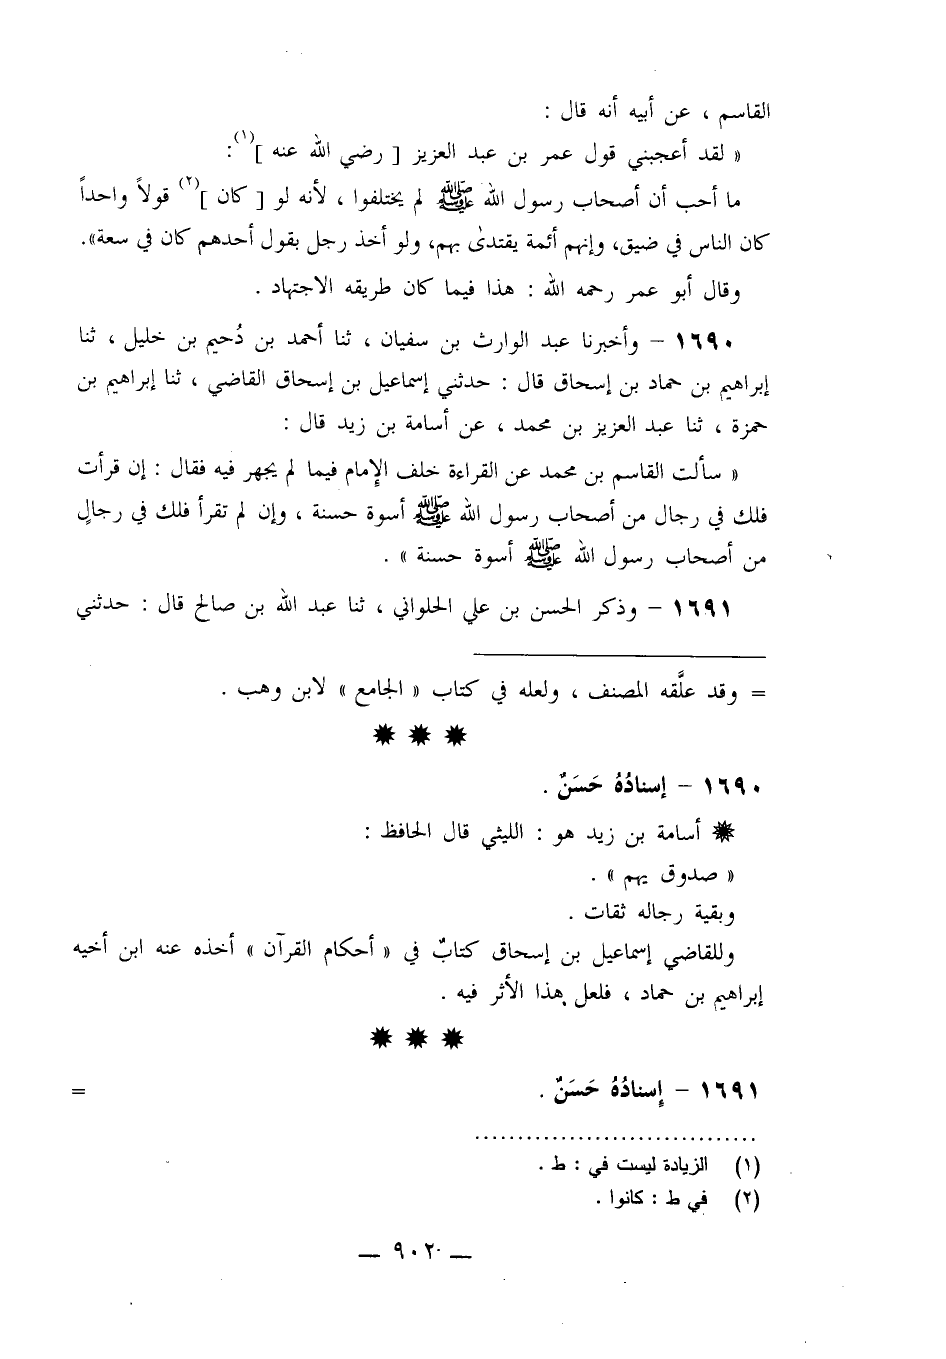 القاسم ، عن أبيه أنه قال :
« لقد أعجبني قول عمر بن عبد العزيز [ رضي الله عنه ](١):
ما أحب أن أصحاب رسول الله ﷺ لم يختلفوا ، لأنه لو [ كان ](٢) قولاً واحداً
كان الناس في ضيق، وإنهم أئمة يقتدىٰ بهم، ولو أخذ رجل بقول أحدهم كان في سعة».
وقال أبو عمر رحمه الله : هذا فيما كان طريقه الاجتهاد .
١٦٩٠ – وأخبرنا عبد الوارث بن سفيان ، ثنا أحمد بن دُحيم بن خليل ، ثنا
إبراهيم بن حماد بن إسحاق قال : حدثني إسماعيل بن إسحاق القاضي ، ثنا إبراهيم بن
حمزة ، ثنا عبد العزيز بن محمد ، عن أسامة بن زيد قال :
« سألت القاسم بن محمد عن القراءة خلف الإمام فيما لم يجهر فيه فقال : إن قرأت
فلك في رجال من أصحاب رسول الله ﷺ أسوة حسنة ، وإن لم تقرأ فلك في رجالٍ
من أصحاب رسول الله ﷺ أسوة حسنة » .
١٦٩١ – وذكر الحسن بن علي الحلواني ، ثنا عبد الله بن صالح قال : حدثني
= وقد علَّقه المصنف ، ولعله في كتاب « الجامع » لابن وهب .
١٦٩٠ – إسنادُهُ حَسَنٌ .
أسامة بن زيد هو : الليثي قال الحافظ :
« صدوق يهم » .
وبقية رجاله ثقات .
وللقاضي إسماعيل بن إسحاق كتابٌ في « أحكام القرآن » أخذه عنه ابن أخيه
إبراهيم بن حماد ، فلعل هذا الأثر فيه .
١٦٩١ – إسنادُهُ حَسَنٌ . =
(١) الزيادة ليست في : ط .
(٢) في ط : كانوا .
— ٩٠٢ —